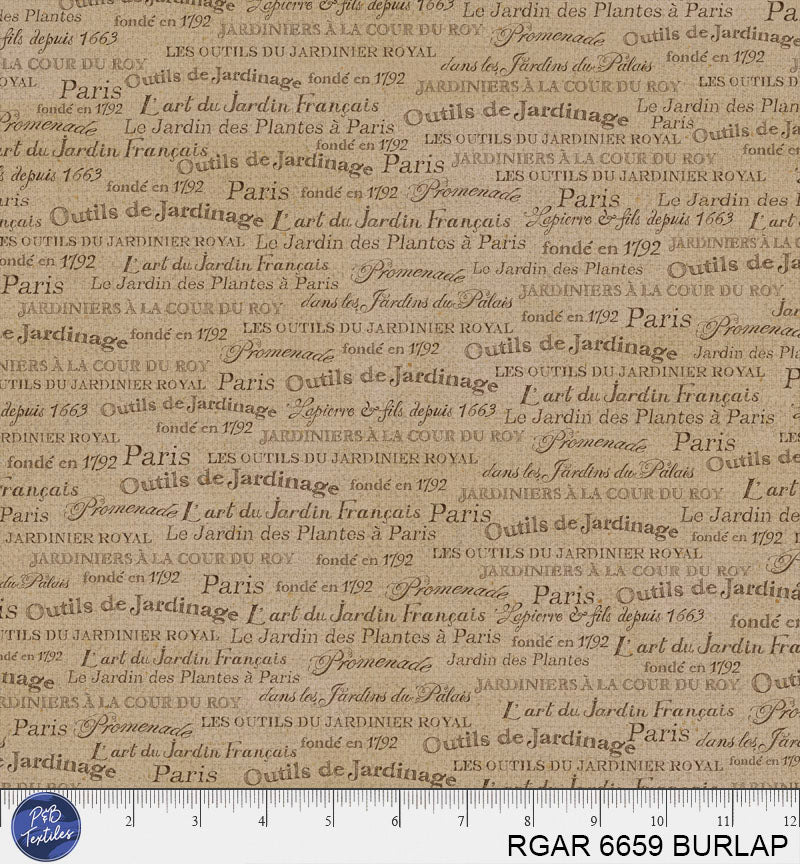 Outils de Jardinage Lapierre & fils depuis 1663 Le Jardin des Plantes à Paris Pa
fondé en 1792 JARDINIERS À LA COUR DU ROY Promenade Outils de Jardinage
fils depuis 1663 LES OUTILS DU JARDINIER ROYAL fondé en 1792
LA COUR DU ROY dans les Jardins du Palais
OYAL Paris Outils de Jardinage fondé en 1792 JARDINIERS À LA COUR DU ROY LES OUTILS D
fondé en 1792 L'art du Jardin Français Outils de Jardinage Le Jardin des Plan
Promenade Le Jardin des Plantes à Paris LES OUTILS DU JARDINIER ROYAL Paris Outils de Ja
art du Jardin Français fondé en 1792 fondé e
Outils de Jardinage Paris JARDINIERS À LA COUR DU ROY
s depuis 1663 LES OUTILS DU JARDINIER ROYAL
fondé en 1792 Paris fondé en 1792 Promenade Paris Le Jardin des Plantes
aris
nçais Outils de Jardinage L'art du Jardin Français Lapierre & fils depuis 1663 L'art
ES OUTILS DU JARDINIER ROYAL Le Jardin des Plantes à Paris fondé en 1792 JARDINIERS À LA C
ondé en 1792 L'art du Jardin Français Promenade Le Jardin des Plantes Outils de Ja
Paris Le Jardin des Plantes à Paris JARDINIERS À LA COUR DU ROY
JARDINIERS À LA COUR DU ROY dans les Jardins du Palais Jar
fondé en 1792 Paris Promenade
e Jardinage fondé en 1792 LES OUTILS DU JARDINIER ROYAL
Promenade fondé en 1792 Outils de Jardinage Jardin des Pla
NIERS À LA COUR DU ROY
UTILS DU JARDINIER ROYAL Paris Outils de Jardinage LES OUTILS DU JARDINIER ROYAL P
L'art du Jardin Français
depuis 1663 Outils de Jardinage Lapierre & fils depuis 1663 Le Jardin des Plantes à Paris
RDINIER ROYAL fondé en 1792 JARDINIERS À LA COUR DU ROY Promenade Paris LES
fondé en 1792 Paris LES OUTILS DU JARDINIER ROYAL dans les Jardins du Palais Outils de
rançais Outils de Jardinage fondé en 1792 JARDINIERS À LA COUR DU ROY L'art
Paris Promenade L'art du Jardin Français Paris Le Jardin des
JARDINIER ROYAL Le Jardin des Plantes à Paris Outils de Jardinage fondé en 1792
JARDINIERS À LA COUR DU ROY fondé en 1792 LES OUTILS DU JARDINIER ROYAL
JARDINIERS À LA COUR DU ROY
du Palais fondé en 1792 Paris fondé en 1792 Promenade Paris Outils de Jardina
is Outils de Jardinage L'art du Jardin Français Lapierre & fils depuis 1663 fondé e
UTILS DU JARDINIER ROYAL Le Jardin des Plantes à Paris fondé en 1792 L'art du Jardin Français
ndé en 1792 L'art du Jardin Français Promenade Jardin des Plantes fondé en 1792
nage Le Jardin des Plantes à Paris JARDINIERS À LA COUR DU ROY Outi
RDINIERS À LA COUR DU ROY dans les Jardins du Palais L'art du Jardin Français Pro
Paris Promenade LES OUTILS DU JARDINIER ROYAL Paris dans les Jar
L'art du Jardin Français fondé en 1792 Outils de Jardinage
e Jardinage Paris Outils de Jardinage LES OUTILS DU JARDINIER ROYAL fondé en 179
DU ROY L'art du Jardin Français
2 3 4 5 6 7 8 9 10 11 12
P&B
Textiles
RGAR 6659 BURLAP